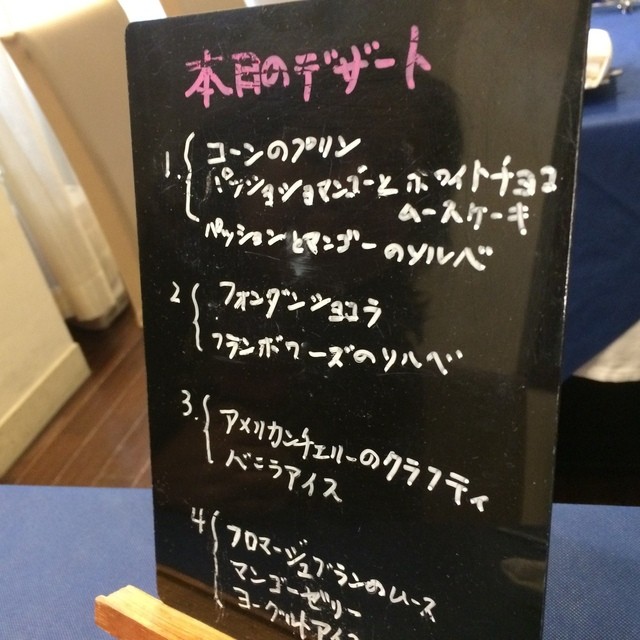 本日のデザート
1. コーンのプリン
パッショショマンゴーとホワイトチョコ
ムースケーキ
パッションとマンゴーのソルベ
2 フォンダンショコラ
フランボワーズのソルベ
3. アメリカンチェリーのクラフティ
バニラアイス
4 フロマージュブランのムース
マンゴーゼリー
ヨーグルトアイス